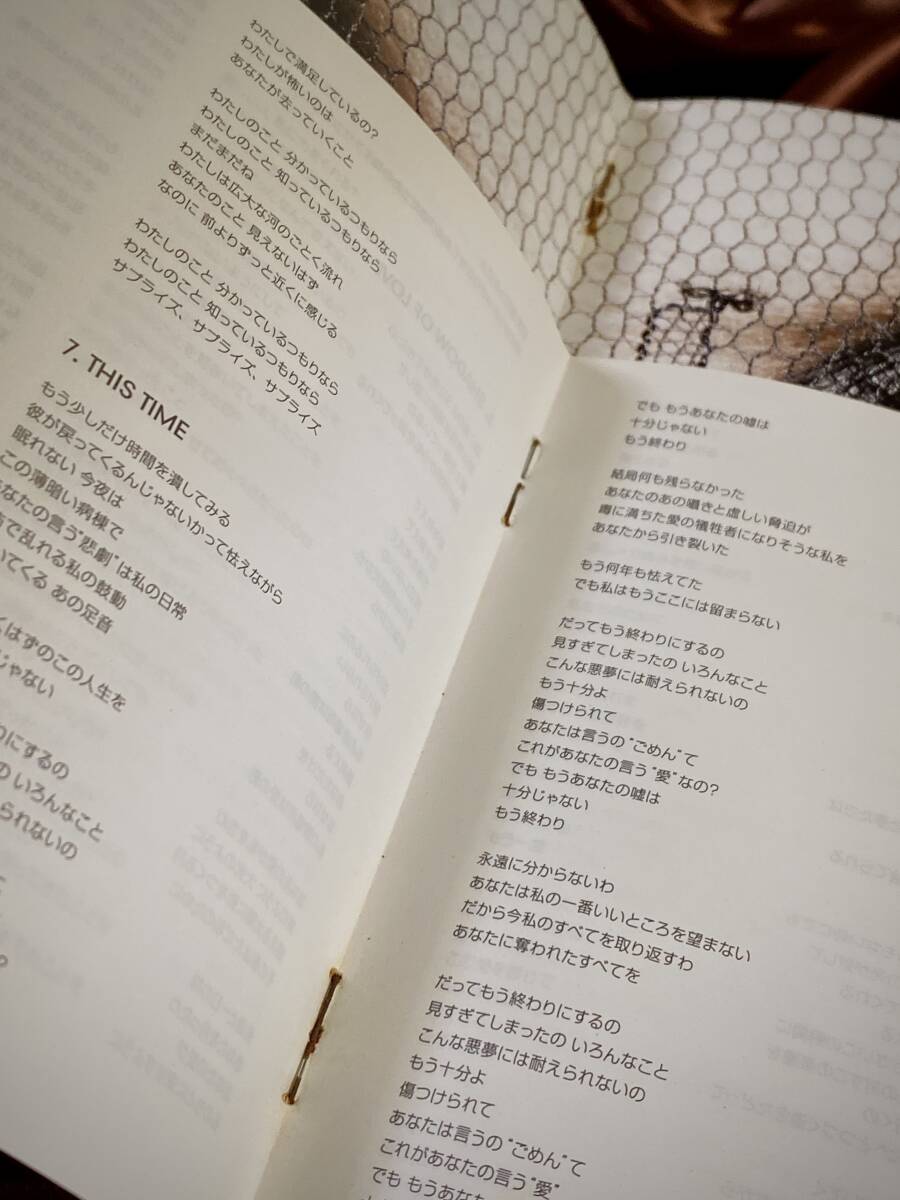 わたしで満足しているの?
わたしが怖いのは
あなたが去っていくこと
わたしのこと 分かっているつもりなら
わたしのこと 知っているつもりなら
まだまだね
わたしは広大な河のごとく流れ
あなたのこと 見えないはず
なのに 前よりずっと近くに感じる
わたしのこと 分かっているつもりなら
わたしのこと 知っているつもりなら
サプライズ、サプライズ、サプライズ
7. THIS TIME
もう少しだけ時間を潰してみる
彼が戻ってくるんじゃないかって怯えながら
眠れない 今夜は
この薄暗い病棟で
なたの言う“悲劇”は私の日常
で乱れる私の鼓動
いてくる あの足音
はずのこの人生を
じゃない
りにするの
の いろんなこと
られないの
でも もうあなたの嘘は
十分じゃない
もう終わり
結局何も残らなかった
あなたのあの囁きと虚しい脅迫が
毒に満ちた愛の犠牲者になりそうな私を
あなたから引き裂いた
もう何年も怯えてた
でも私はもうここには留まらない
だってもう終わりにするの
見すぎてしまったの いろんなこと
こんな悪夢には耐えられないの
もう十分よ
傷つけられて
あなたは言うの “ごめん”て
これがあなたの言う “愛”なの?
でも もうあなたの嘘は
十分じゃない
もう終わり
永遠に分からないわ
あなたは私の一番いいところを望まない
だから今私のすべてを取り返すわ
あなたに奪われたすべてを
だってもう終わりにするの
見すぎてしまったの いろんなこと
こんな悪夢には耐えられないの
もう十分よ
傷つけられて
あなたは言うの “ごめん”て
これがあなたの言う “愛”
でも もうあなた